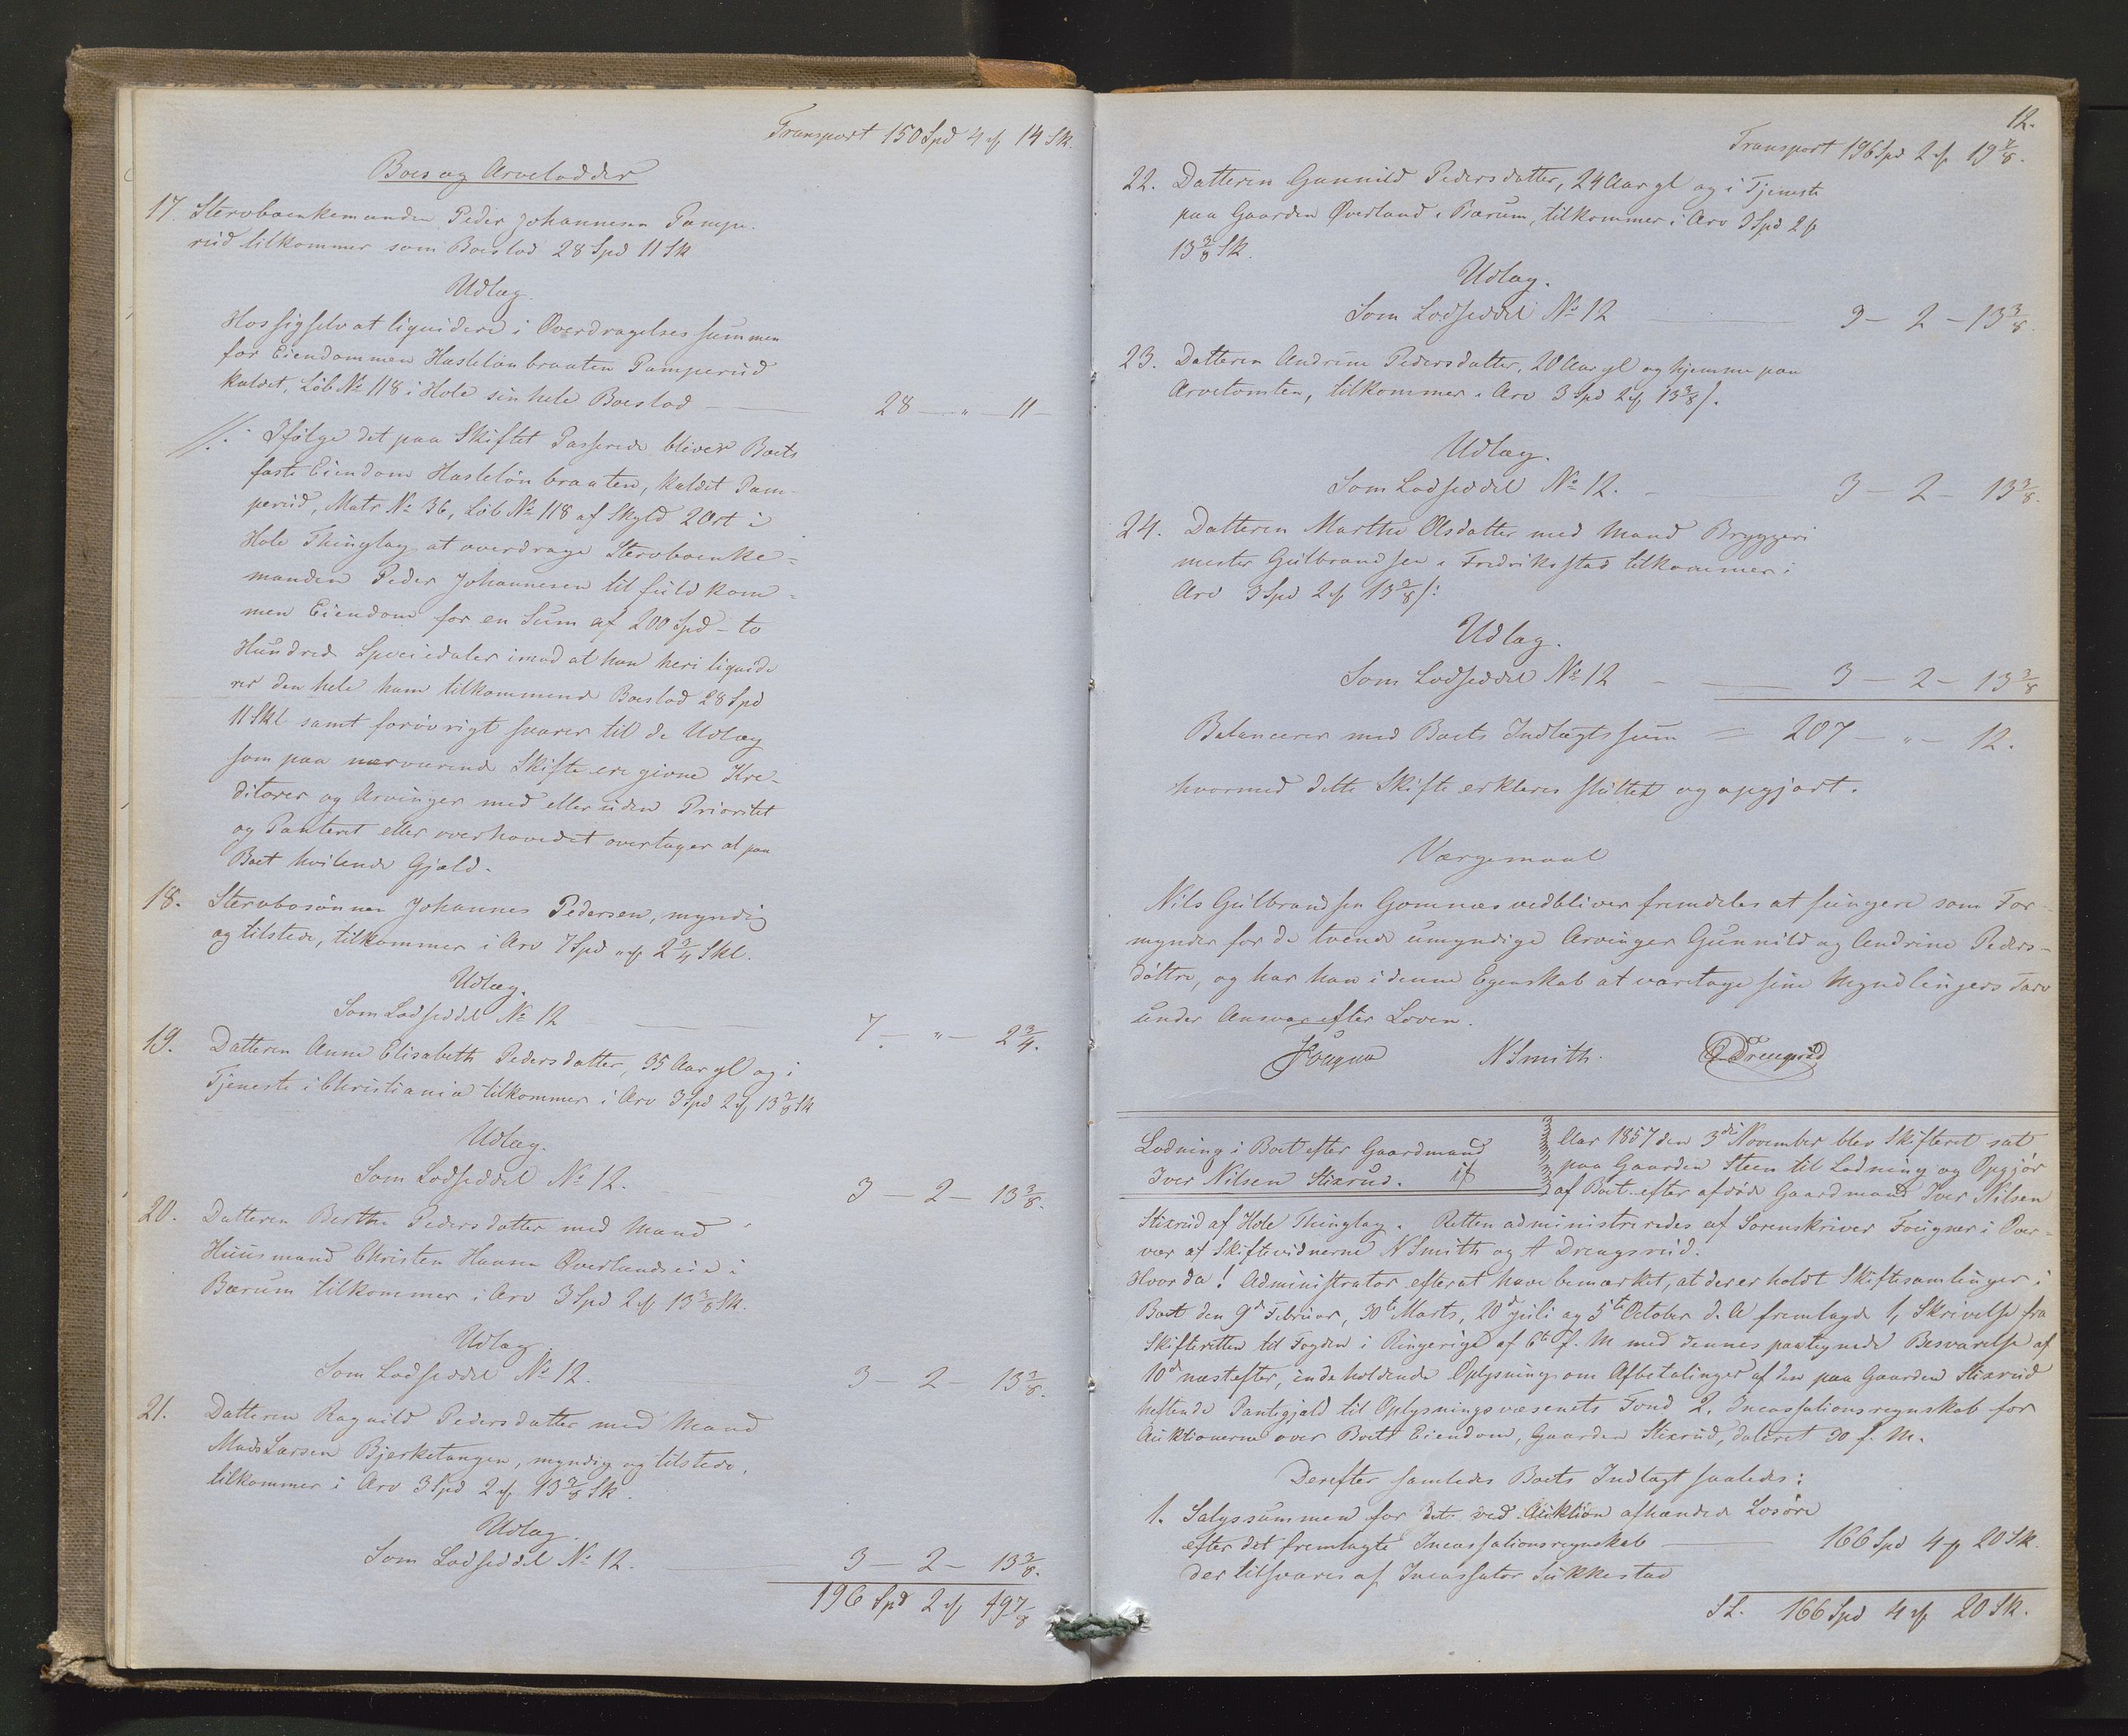 Transport 150 Spd 4 ⌠ 14 Sk.
Boes og Arvelodder
17. Stervboenkemanden Peder Johannesen Pampe-
rud tilkommer som Boeslod 28 Spd 11 Sk
Udlæg.
Hos sig selv at liquidere i Overdragelsessummen
for Eiendommen Haslelønbraaten Pamperud
kaldet, Løb No 118 i Hole sin hele Boeslod — 28 — " — 11 —
//: Ifølge det paa Skiftet Passerede bliver Boets
faste Eiendom Haslelønbraaten, kaldet Pam-
perud, Matr No 36, Løb No 118 af Skyld 2 Ort i
Hole Thinglag at overdrage Stervboenke-
manden Peder Johannesen til fuldkom-
men Eiendom for en Sum af 200 Spd - to
Hundred Speciedaler imod at han heri liquide
rer den hele ham tilkommende Boeslod 28 Spd
11 Skl samt forøvrigt svarer til de Udlæg
som paa nærværende Skifte ere givne Kre-
ditorer og Arvinger med eller uden Prioritet
og Panteret eller overhovedet overtager al paa
Boet hvilende Gjæld.
18. Stervbosønnen Johannes Pedersen, myndig
og tilstede, tilkommer i Arv 7 Spd " ⌠ 2 3/4 Skl.
Udlæg.
Som Lodseddel No 12 — 7 — " — 2 3/4.
19. Datteren Anne Elisabeth Pedersdatter, 35 Aar gl og i
Tjeneste i Christiania tilkommer i Arv 3 Spd 2 ⌠ 13 3/8 Sk
Udlæg.
Som Lodseddel No 12. — 3 — 2 — 13 3/8.
20. Datteren Berthe Pedersdatter med Mand
Huusmand Christen Hansen Øverlandseie i
Bærum tilkommer i Arv 3 Spd 2 ⌠ 13 3/8 Sk.
Udlæg
Som Lodseddel No 12. 3 — 2 — 13 3/8.
21. Datteren Ragnild Pedersdatter med Mand
Mads Larsen Bjerketangen, myndig og tilstede,
tilkommer i Arv 3 Spd 2 ⌠ 13 3/8 Sk.
Udlæg.
Som Lodseddel No 12. — 3 — 2 — 13 3/8.
196 Spd 2 ⌠ 19 7/8
12.
Transport 196 Spd 2 ⌠ 19 7/8.
22. Datteren Gunnild Pedersdatter, 24 Aar gl og i Tjeneste
paa Gaarden Øverland i Bærum, tilkommer i Arv 3 Spd 2 ⌠
13 3/8 Sk.
Udlæg.
Som Lodseddel No 12 — 3 — 2 — 13 3/8.
23. Datteren Andrine Pedersdatter, 20 Aar gl og hjemme paa
Arvetomten, tilkommer i Arv 3 Spd 2 ⌠ 13 3/8 /.
Udlæg.
Som Lodseddel No 12. — 3 — 2 — 13 3/8.
24. Datteren Marthe Olsdatter med Mand Bryggeri
mester Gulbrandsen i Fredriksstad tilkommer i
Arv 3 Spd 2 ⌠ 13 3/8 /:
Udlæg.
Som Lodseddel No 12 — 3 — 2 — 13 3/8
Balancerer med Boets Indtægtssum = 207 — " — 12.
hvormed dette Skifte erklæres sluttet og opgjort.
Værgemaal
Nils Gulbrandsen Gomnæs vedbliver fremdeles at fungere som For-
mynder for de tvende umyndige Arvinger Gunnild og Andrine Peders-
døttre, og har han i denne Egenskab at varetage sine Myndlingers Tarv
under Ansvar efter Loven.
Fougner N Smith. A Drengsrud
Lodning i Boet efter Gaardmand
Iver Nilsen Stixrud.
Aar 1857 den 3de November blev Skifteret sat
paa Gaarden Steen til Lodning og Opgjør
af Boet efter afdøde Gaardmand Iver Nilsen
Stixrud af Hole Thinglag. Retten administreredes af Sorenskriver Fougner i Over-
vær af Skiftevidnerne N Smith og A Drengsrud.
Hvorda! Administrator efterat have bemærket, at der er holdt Skiftesamlinger i
Boet den 9de Februar, 30te Marts, 20de Juli og 5te October d. A fremlagde 1, Skrivelse fra
Skifteretten til Fogden i Ringerige af 6te f. M med dennes paategnede Besvarelse af
10de næstefter, indeholdende Oplysning om Afbetalinger af den paa Gaarden Stixrud
heftende Pantegjæld til Oplysningsvæsenets Fond 2. Incassationsregnskab for
Auktionerne over Boets Eiendom, Gaarden Stixrud, dateret 30 f. M.
Derefter samledes Boets Indtægt saaledes:
1. Salgssummen for det ved Auktion afhændede Løsøre
efter det fremlagte Incassationsregnskab — 166 Spd 4 ⌠ 20 Sk.
der tilsvares af Incassator Sukkestad
SL. 166 Spd 4 ⌠ 20 Sk.